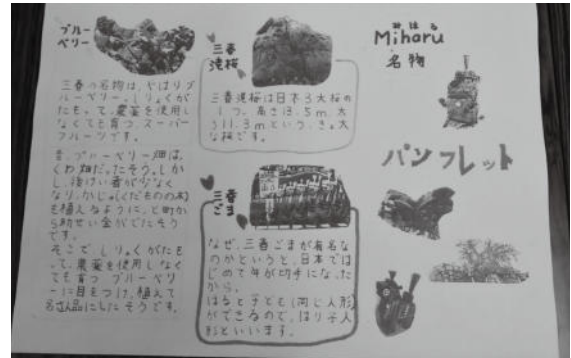 ブルー
ベリー
三春の名物は、やはりブ
ルーベリー。しりょくが
たもって、農薬を使用し
なくても育つ、スーパー
フルーツです。
昔、ブルーベリー畑は、
くわ畑だったそう。しか
し、
が少なく
なり、かじゅ(くだものの木)
を植えるように、と町か
ら助せい金がでたそう
です。
そこで、しりょくがたも
って、農薬を使用しなく
ても育つ ブルーベリ
ーに目をつけ、植えて
名さん品にしたそうです。
三春
滝桜
三春滝桜は日本3大桜の
1つ。高さ13.5m、太
さ11.3mという、きょ大
な桜です。
三春
ごま
なぜ、三春ごまが有名な
のかというと、日本では
じめて年が切手になった
から。
はると子ども(同じ人形)
ができるので、はり子人
形といいます。
みはる
Miharu
名物
パンフレット